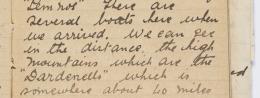 "Lemnos" There are
several boats here when
we arrived. We can see
in the distance, the high
mountains which are the
"Dardenells" which is
somewhere about 40 miles